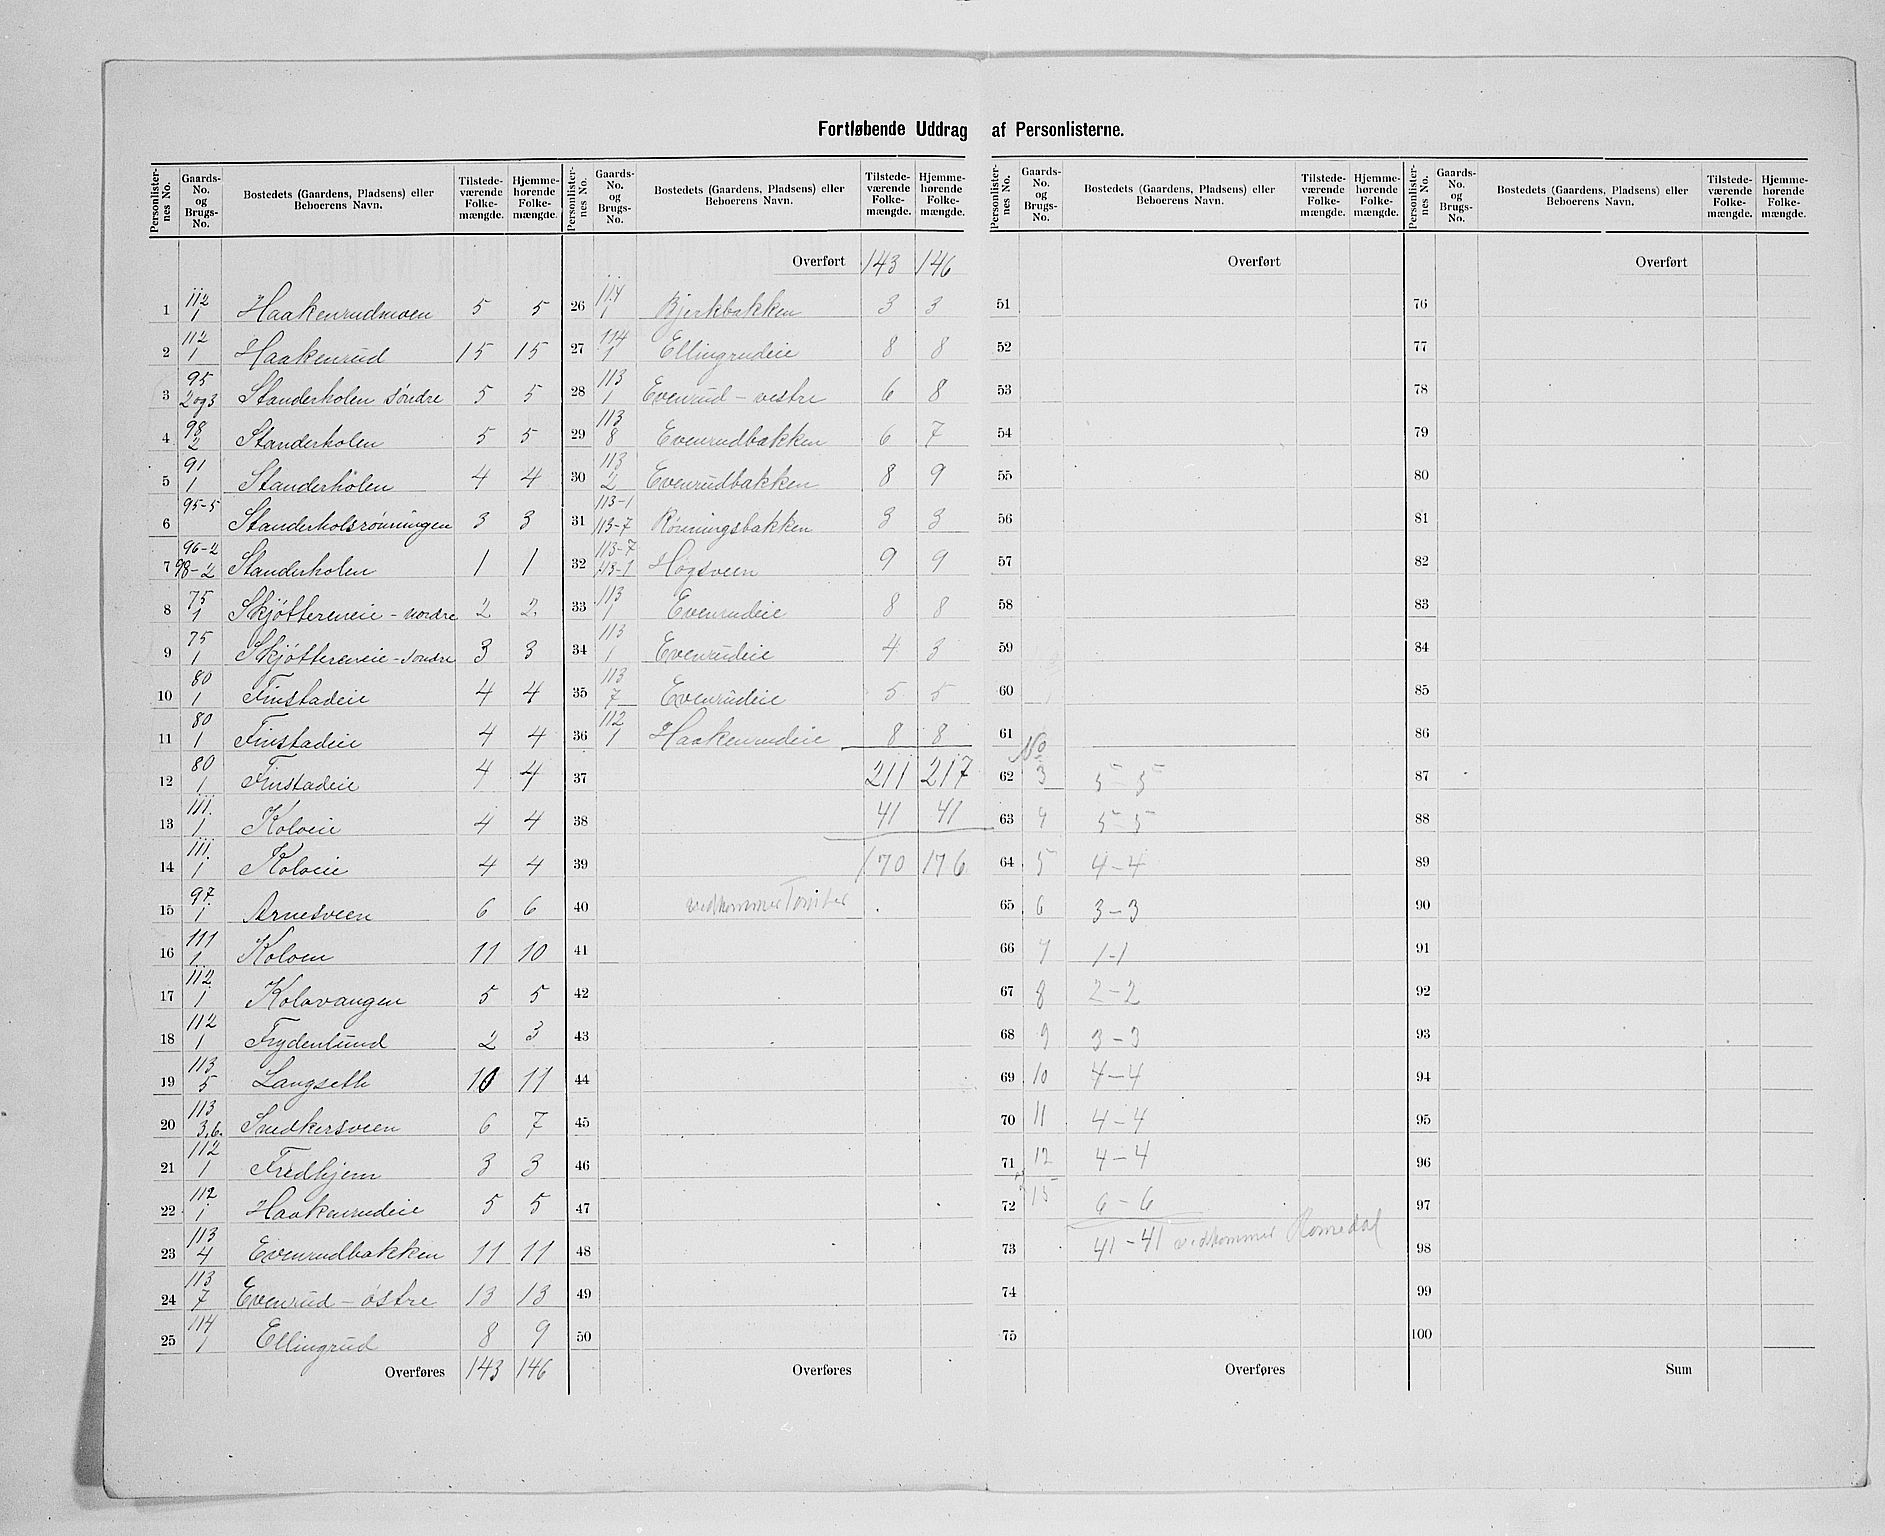 Fortløbende Uddrag af Personlisterne.
Personlister-nes No. Gaards-No. og Brugs-No. Bostedets (Gaardens, Pladsens) eller Beboerens Navn. Tilstede-værende Folke-mængde. Hjemme-hørende Folke-mængde.
1 112/1 Haakenrudmoen 5 5
2 112/1 Haakenrud 15 15
3 95/2 og 3 Standerholen søndre 5 5
4 98/2 Standerholen 5 5
5 91/1 Standerholen 4 4
6 95-5 Standerholsrønningen 3 3
7 96-2 98-2 Standerholen 1 1
8 75/1 Skjøttereneie - nordre 2 2
9 75/1 Skjøttereneie - søndre 3 3
10 80/1 Finstadeie 4 4
11 80/1 Finstadeie 4 4
12 80/1 Finstadeie 4 4
13 111/1 Koloeie 4 4
14 111/1 Koloeie 4 4
15 97/1 Arnesveen 6 6
16 111/1 Koloen 11 10
17 112/1 Kolovangen 5 5
18 112/1 Frydenlund 2 3
19 113/5 Langseth 10 11
20 113/3,6. Snedkersveen 6 7
21 112/1 Fredhjem 3 3
22 112/1 Haakenrudeie 5 5
23 113/4 Evenrudbakken 11 11
24 113/7 Evenrud - østre 13 13
25 114/1 Ellingrud 8 9
Overføres 143 146
Personlister-nes No. Gaards-No. og Brugs-No. Bostedets (Gaardens, Pladsens) eller Beboerens Navn. Tilstede-værende Folke-mængde. Hjemme-hørende Folke-mængde.
Overført 143 146
26 114/1 Bjerkbakken 3 3
27 114/1 Ellingrudeie 8 8
28 113/1 Evenrud - vestre 6 8
29 113/8 Evenrudbakken 6 7
30 113/2 Evenrudbakken 8 9
31 113-1 113-7 Rønningsbakken 3 3
32 113-7 113-1 Høgsveen 9 9
33 113/1 Evenrudeie 8 8
34 113/1 Evenrudeie 4 3
35 113/7 Evenrudeie 5 5
36 112/1 Haakenrudeie 8 8
37 211 217
38 41 41
39 170 176
40 vedkommer Tomter
41
42
43
44
45
46
47
48
49
50
Overføres
Personlister-nes No. Gaards-No. og Brugs-No. Bostedets (Gaardens, Pladsens) eller Beboerens Navn. Tilstede-værende Folke-mængde. Hjemme-hørende Folke-mængde.
Overført
51
52
53
54
55
56
57
58
59
60
61 No
62 3 5-5
63 4 5-5
64 5 4-4
65 6 3-3
66 7 1-1
67 8 2-2
68 9 3-3
69 10 4-4
70 11 4-4
71 12 4-4
72 15 6-6
73 41-41 vedkommer Romedal
74
75
Overføres
Personlister-nes No. Gaards-No. og Brugs-No. Bostedets (Gaardens, Pladsens) eller Beboerens Navn. Tilstede-værende Folke-mængde. Hjemme-hørende Folke-mængde.
Overført
76
77
78
79
80
81
82
83
84
85
86
87
88
89
90
91
92
93
94
95
96
97
98
99
100
Sum